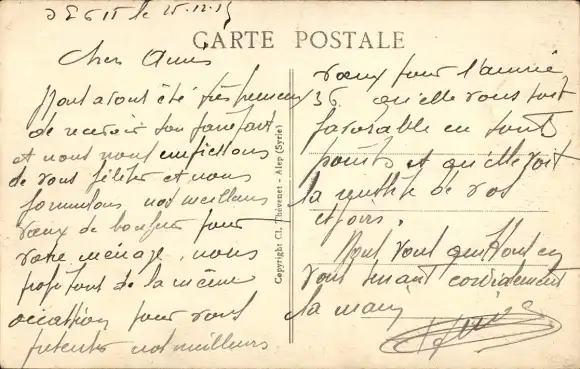 le 25.12.35
CARTE POSTALE
Chers Amis
Nous avons été très heureux
de recevoir son faire part
et nous nous empressons
de vous féliciter et nous
formulons nos meilleurs
vœux de bonheur pour
votre ménage, nous
profitons de la même
occasion pour vous
présenter nos meilleurs
Copyright Cl. Thévenet - Alep (Syrie)
vœux pour l'année
36 qu'elle vous soit
favorable en tout
points et qu'elle soit
la de vos
espoirs.
Nous vous quittons en
vous serrant cordialement
la main